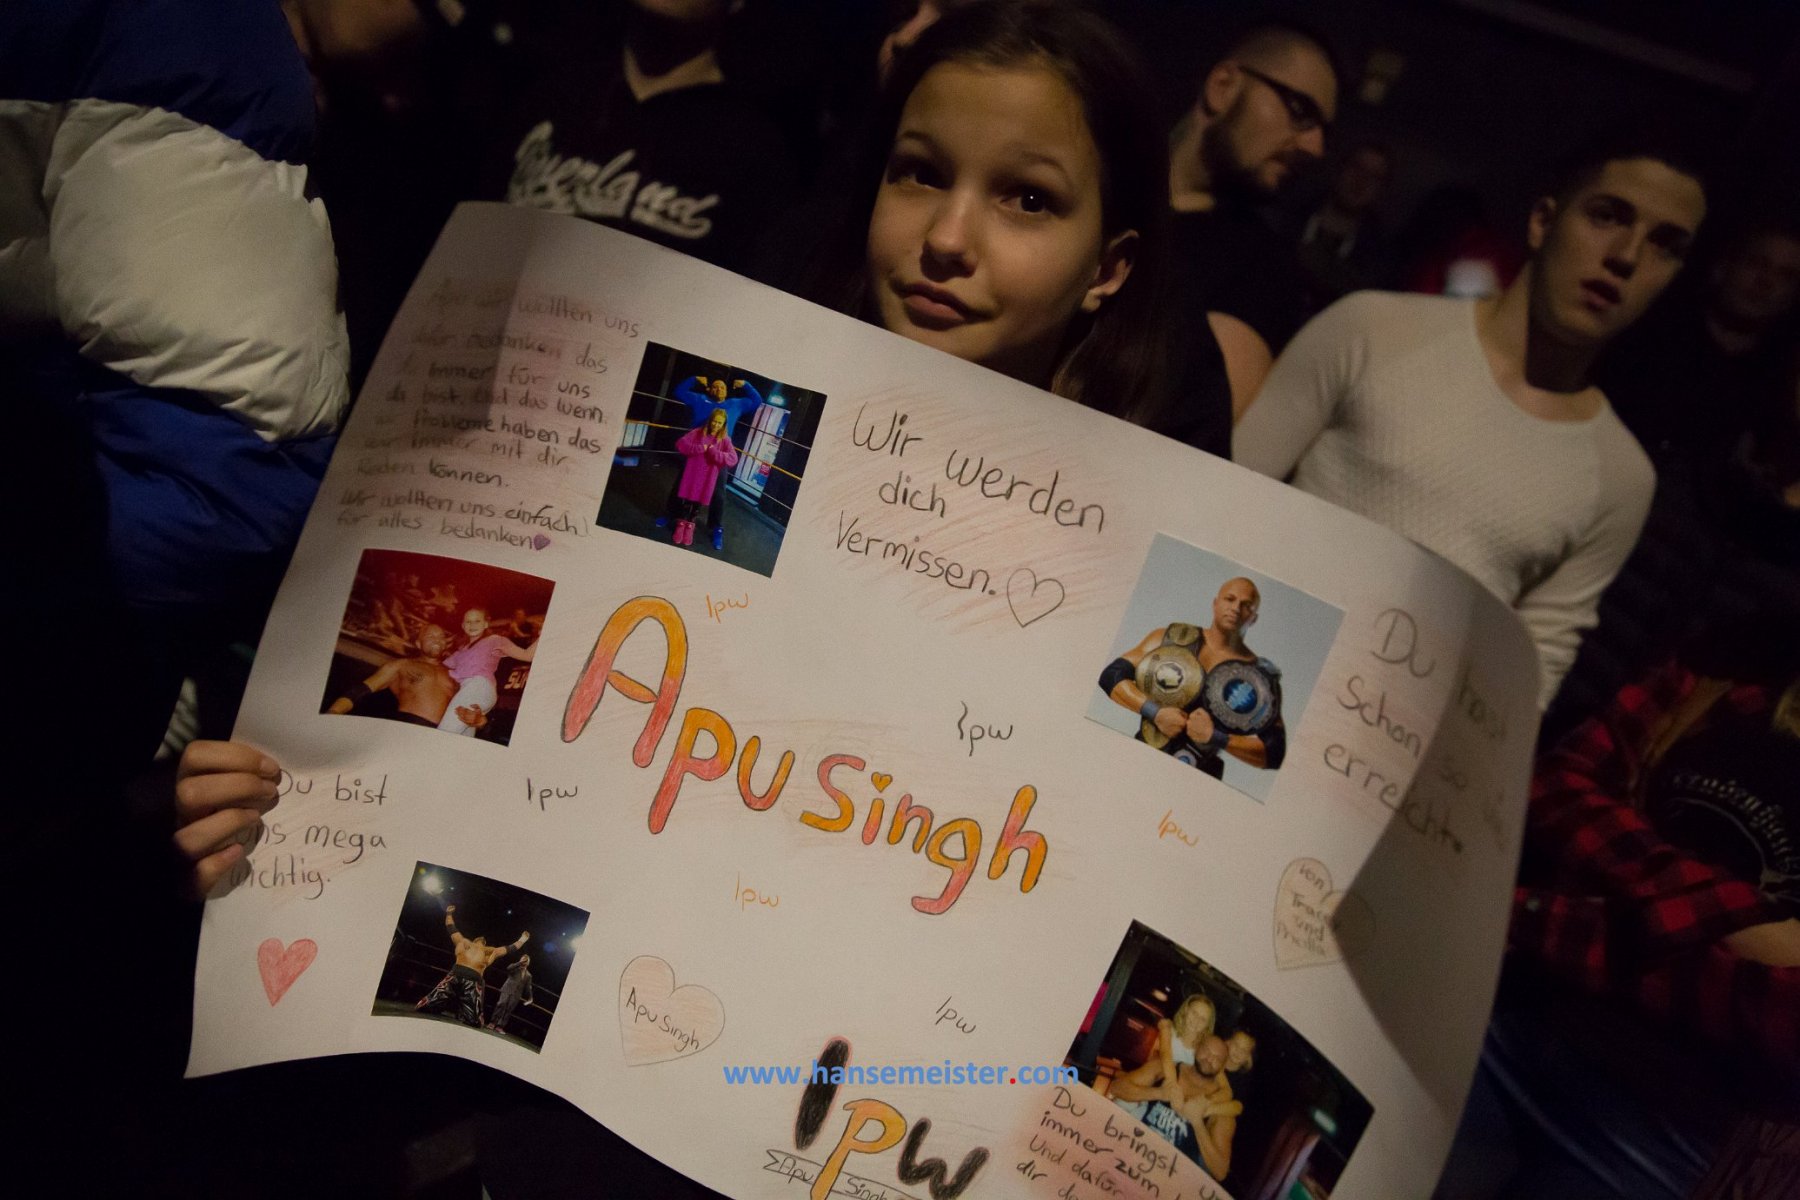 wollten uns
bedanken das
immer für uns
da bist. Und das wenn
wir Probleme haben das
wir immer mit dir
Reden können.
Wir wollten uns einfach
für alles bedanken
Wir werden
dich
Vermissen.
Du hast
Schon so
erreicht.
lpw
Apu Singh
lpw
lpw
lpw
lpw
lpw
Du bist
uns mega
wichtig.
von
und
Apu Singh
lpw
Apu Singh
Du bringst
immer zum
Und dafür
dir
www.hansemeister.com